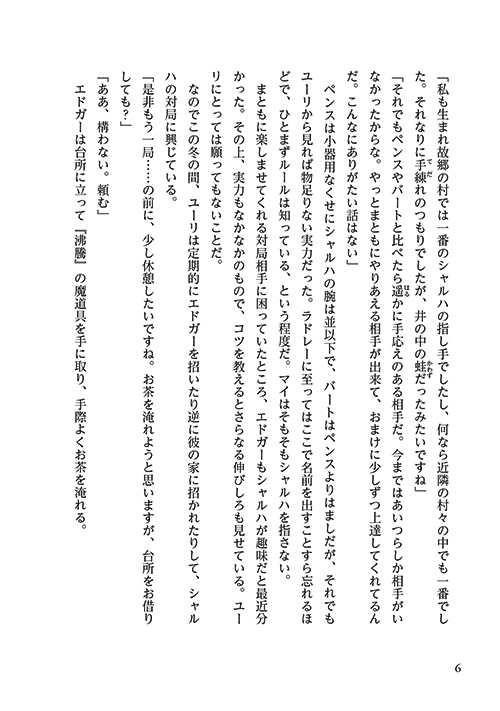 「私も生まれ故郷の村では一番のシャルハの指し手でしたし、何なら近隣の村々の中でも一番でし
た。それなりに手練れのつもりでしたが、井の中の蛙だったみたいですね」
「それでもペンスやバートと比べたら遥かに手応えのある相手だ。今まではあいつらしか相手がい
なかったからな。やっとまともにやりあえる相手が出来て、おまけに少しずつ上達してくれてるん
だ。こんなにありがたい話はない」
ペンスは小器用なくせにシャルハの腕は並以下で、バートはペンスよりはましだが、それでも
ユーリから見れば物足りない実力だった。ラドレーに至ってはここで名前を出すことすら忘れるほ
どで、ひとまずルールは知っている、という程度だ。マイはそもそもシャルハを指さない。
まともに楽しませてくれる対局相手に困っていたところ、エドガーもシャルハが趣味だと最近分
かった。その上、実力もなかなかのもので、コツを教えるとさらなる伸びしろも見せている。ユー
リにとっては願ってもないことだ。
なのでこの冬の間、ユーリは定期的にエドガーを招いたり逆に彼の家に招かれたりして、シャル
ハの対局に興じている。
「是非もう一局……の前に、少し休憩したいですね。お茶を淹れようと思いますが、台所をお借り
しても？」
「ああ、構わない。頼む」
エドガーは台所に立って『沸騰』の魔道具を手に取り、手際よくお茶を淹れる。
6